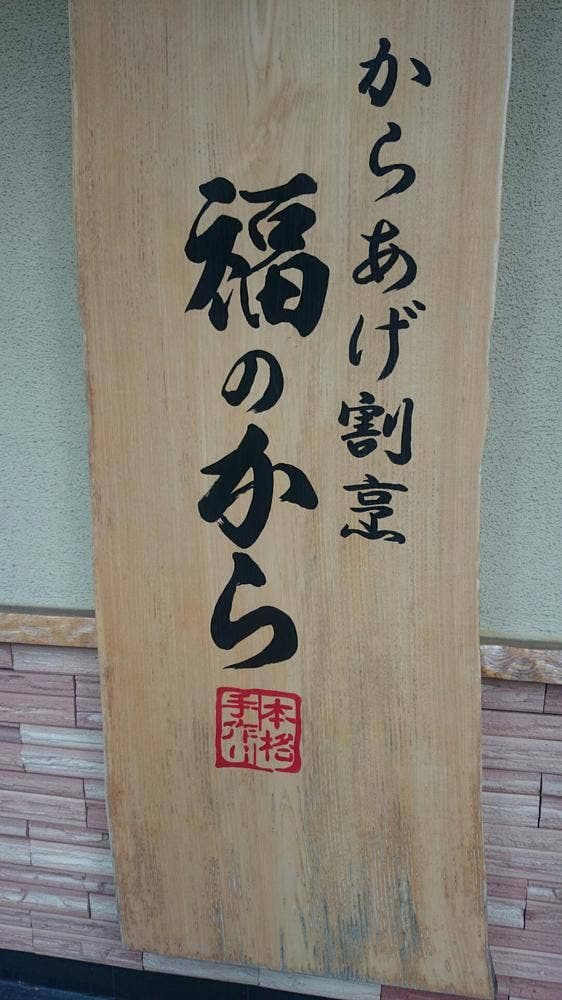 からあげ割烹
福のから
本格
手作り